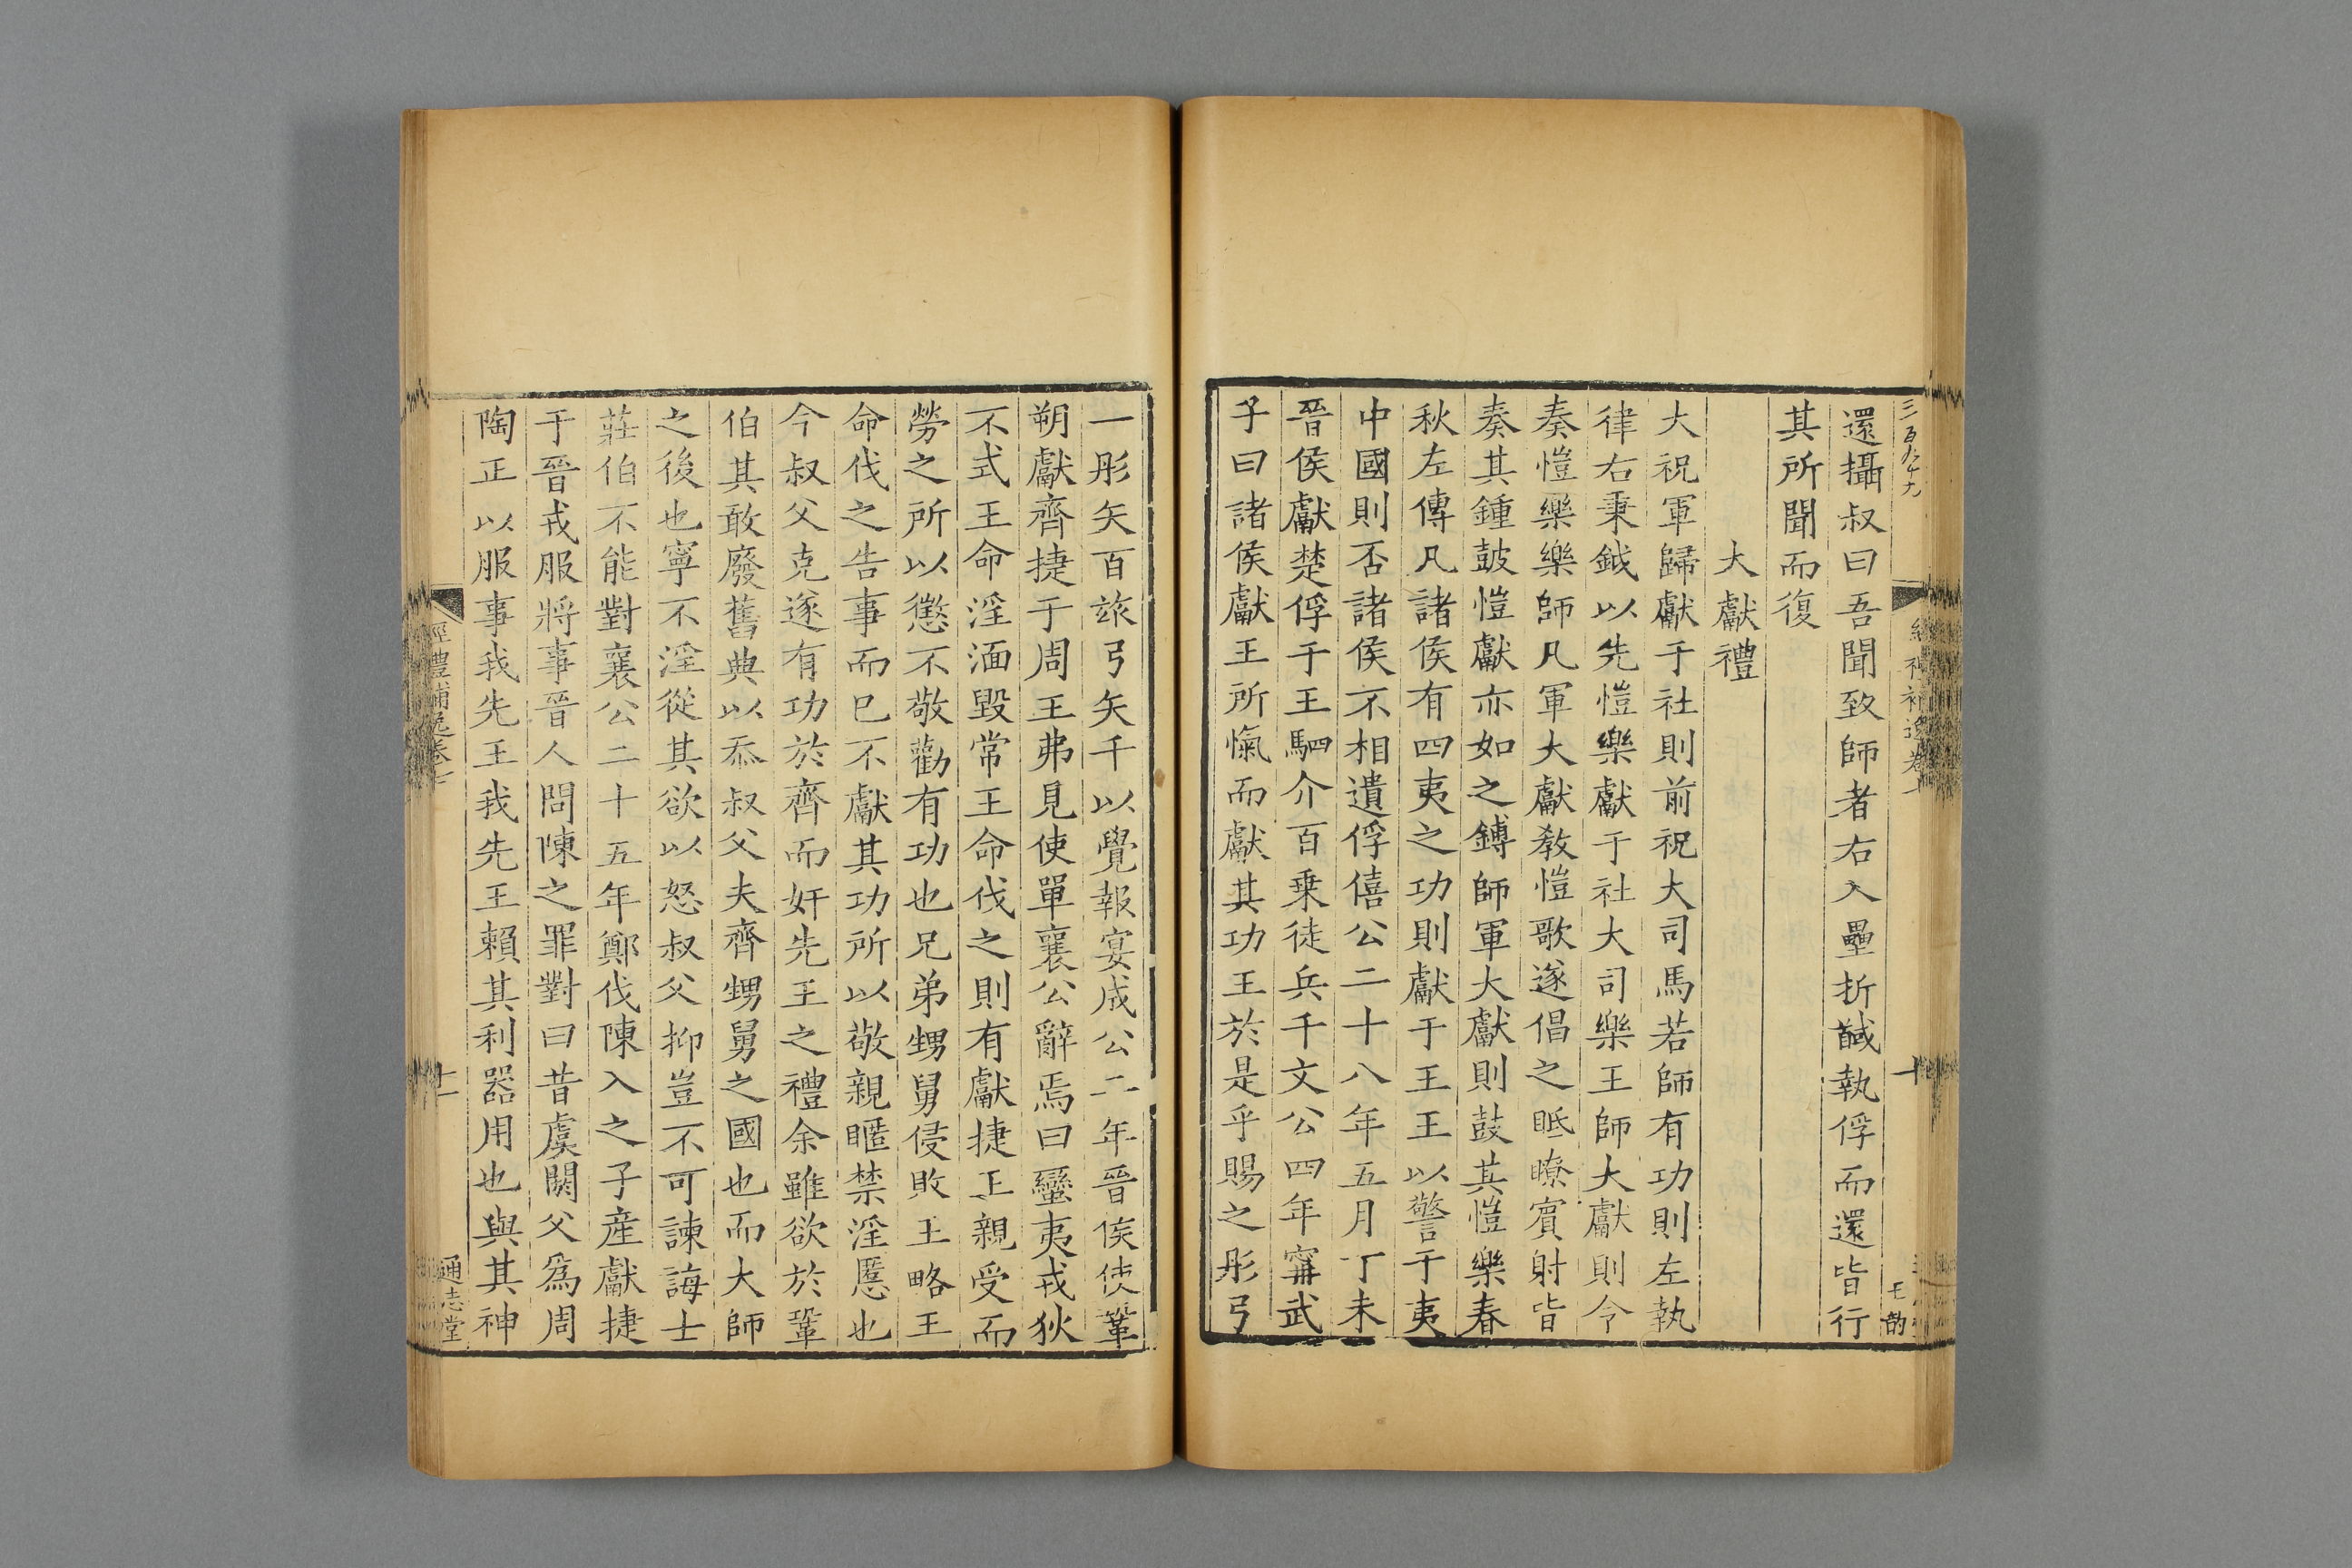 還攝叔曰吾聞致師者右入壘折馘執俘而還皆行
其所聞而復
大獻禮
大祝軍歸獻于社則前祝大司馬若師有功則左執
律右秉鉞以先愷樂獻于社大司樂王師大獻則令
奏愷樂樂師凡軍大獻教愷歌遂倡之眡瞭賓射皆
奏其鍾鼓愷獻亦如之鎛師軍大獻則鼓其愷樂春
秋左傳凡諸侯有四夷之功則獻于王王以警于夷
中國則否諸侯不相遺俘僖公二十八年五月丁未
晉侯獻楚俘于王駟介百乗徒兵千文公四年甯武
子曰諸侯獻王所愾而獻其功王於是乎賜之彤弓
一彤矢百玈弓矢千以覺報宴成公二年晉侯使鞏
朔獻齊捷于周王弗見使單襄公辭焉曰蠻夷戎狄
不式王命淫湎毀常王命伐之則有獻捷王親受而
勞之所以懲不敬勸有功也兄弟甥舅侵敗王略王
命伐之告事而巳不獻其功所以敬親暱禁淫慝也
今叔父克遂有功於齊而奸先王之禮余雖欲於鞏
伯其敢廢舊典以忝叔父夫齊甥舅之國也而大師
之後也寧不淫從其欲以怒叔父抑豈不可諫誨士
莊伯不能對襄公二十五年鄭伐陳入之子産獻捷
于晉戎服將事晉人問陳之罪對曰昔虞閼父爲周
陶正以服事我先王我先王賴其利器用也與其神
經禮補逸卷七
十一
通志堂